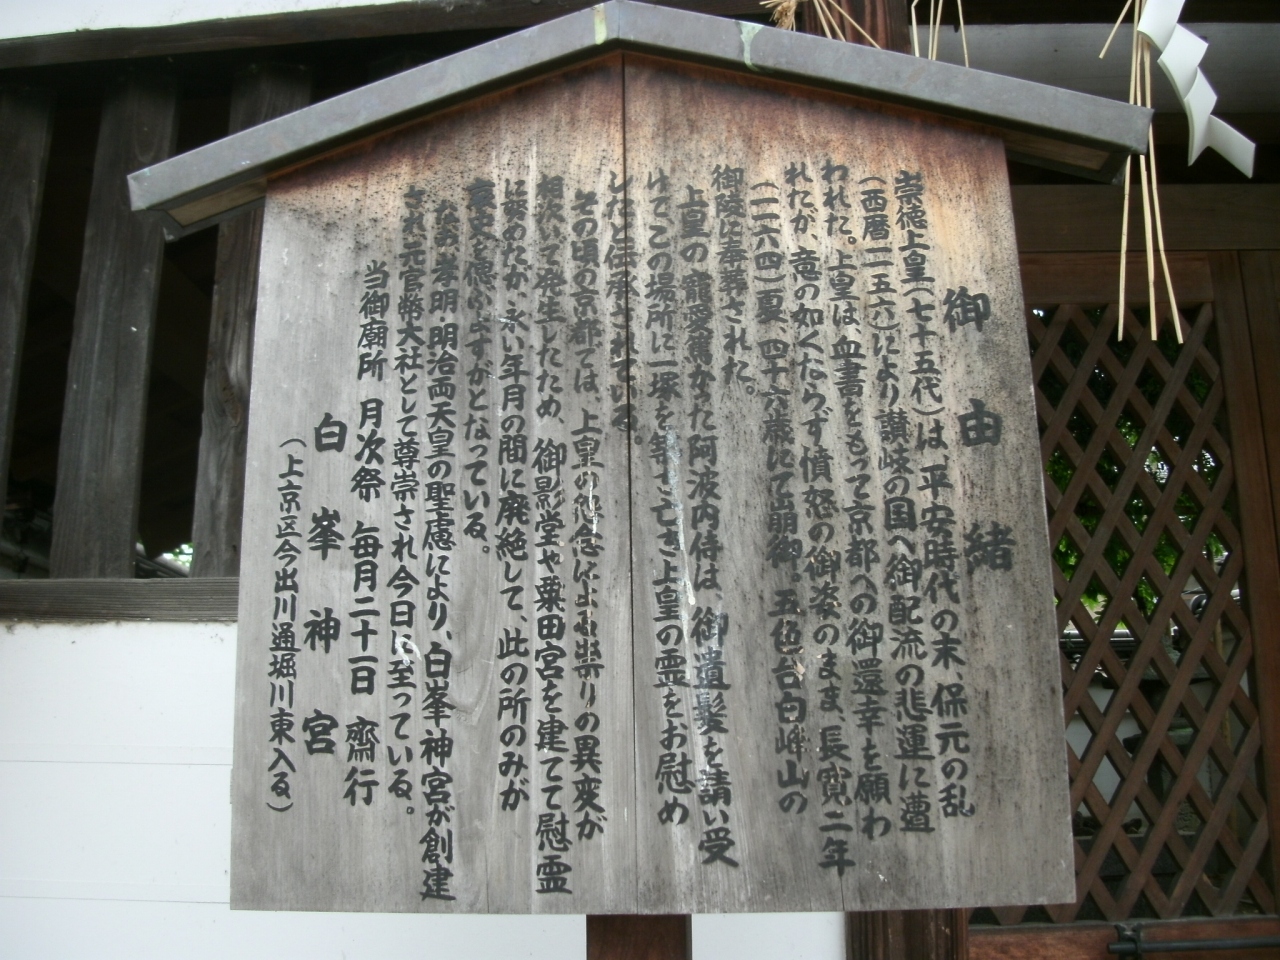 御由緒
崇徳上皇(七十五代)は、平安時代の末、保元の乱
(西暦一一五六)により讃岐の国へ御配流の悲運に遭
われた。上皇は、血書をもって京都への御還幸を願わ
れたが、意の如くならず憤怒の御姿のまま、長寛二年
(一一六四)夏、四十六歳にて崩御。五色台白峰山の
御陵に奉葬された。
上皇の寵愛篤かった阿波内侍は、御遺髪を請い受
けてこの場所に一塚を築き亡き上皇の霊をお慰め
したと伝承されている。
その頃の京都では、上皇の怨念による祟りの異変が
相次いで発生したため、御影堂や粟田宮を建てて慰霊
に努めたが、永い年月の間に廃絶して、此の所のみが
歴史を偲ぶよすがとなっている。
なお、孝明・明治両天皇の聖慮により、白峯神宮が創建
され元官幣大社として尊崇され今日に至っている。
当御廟所 月次祭 毎月二十一日 斎行
白峯神宮
(上京区今出川通堀川東入る)